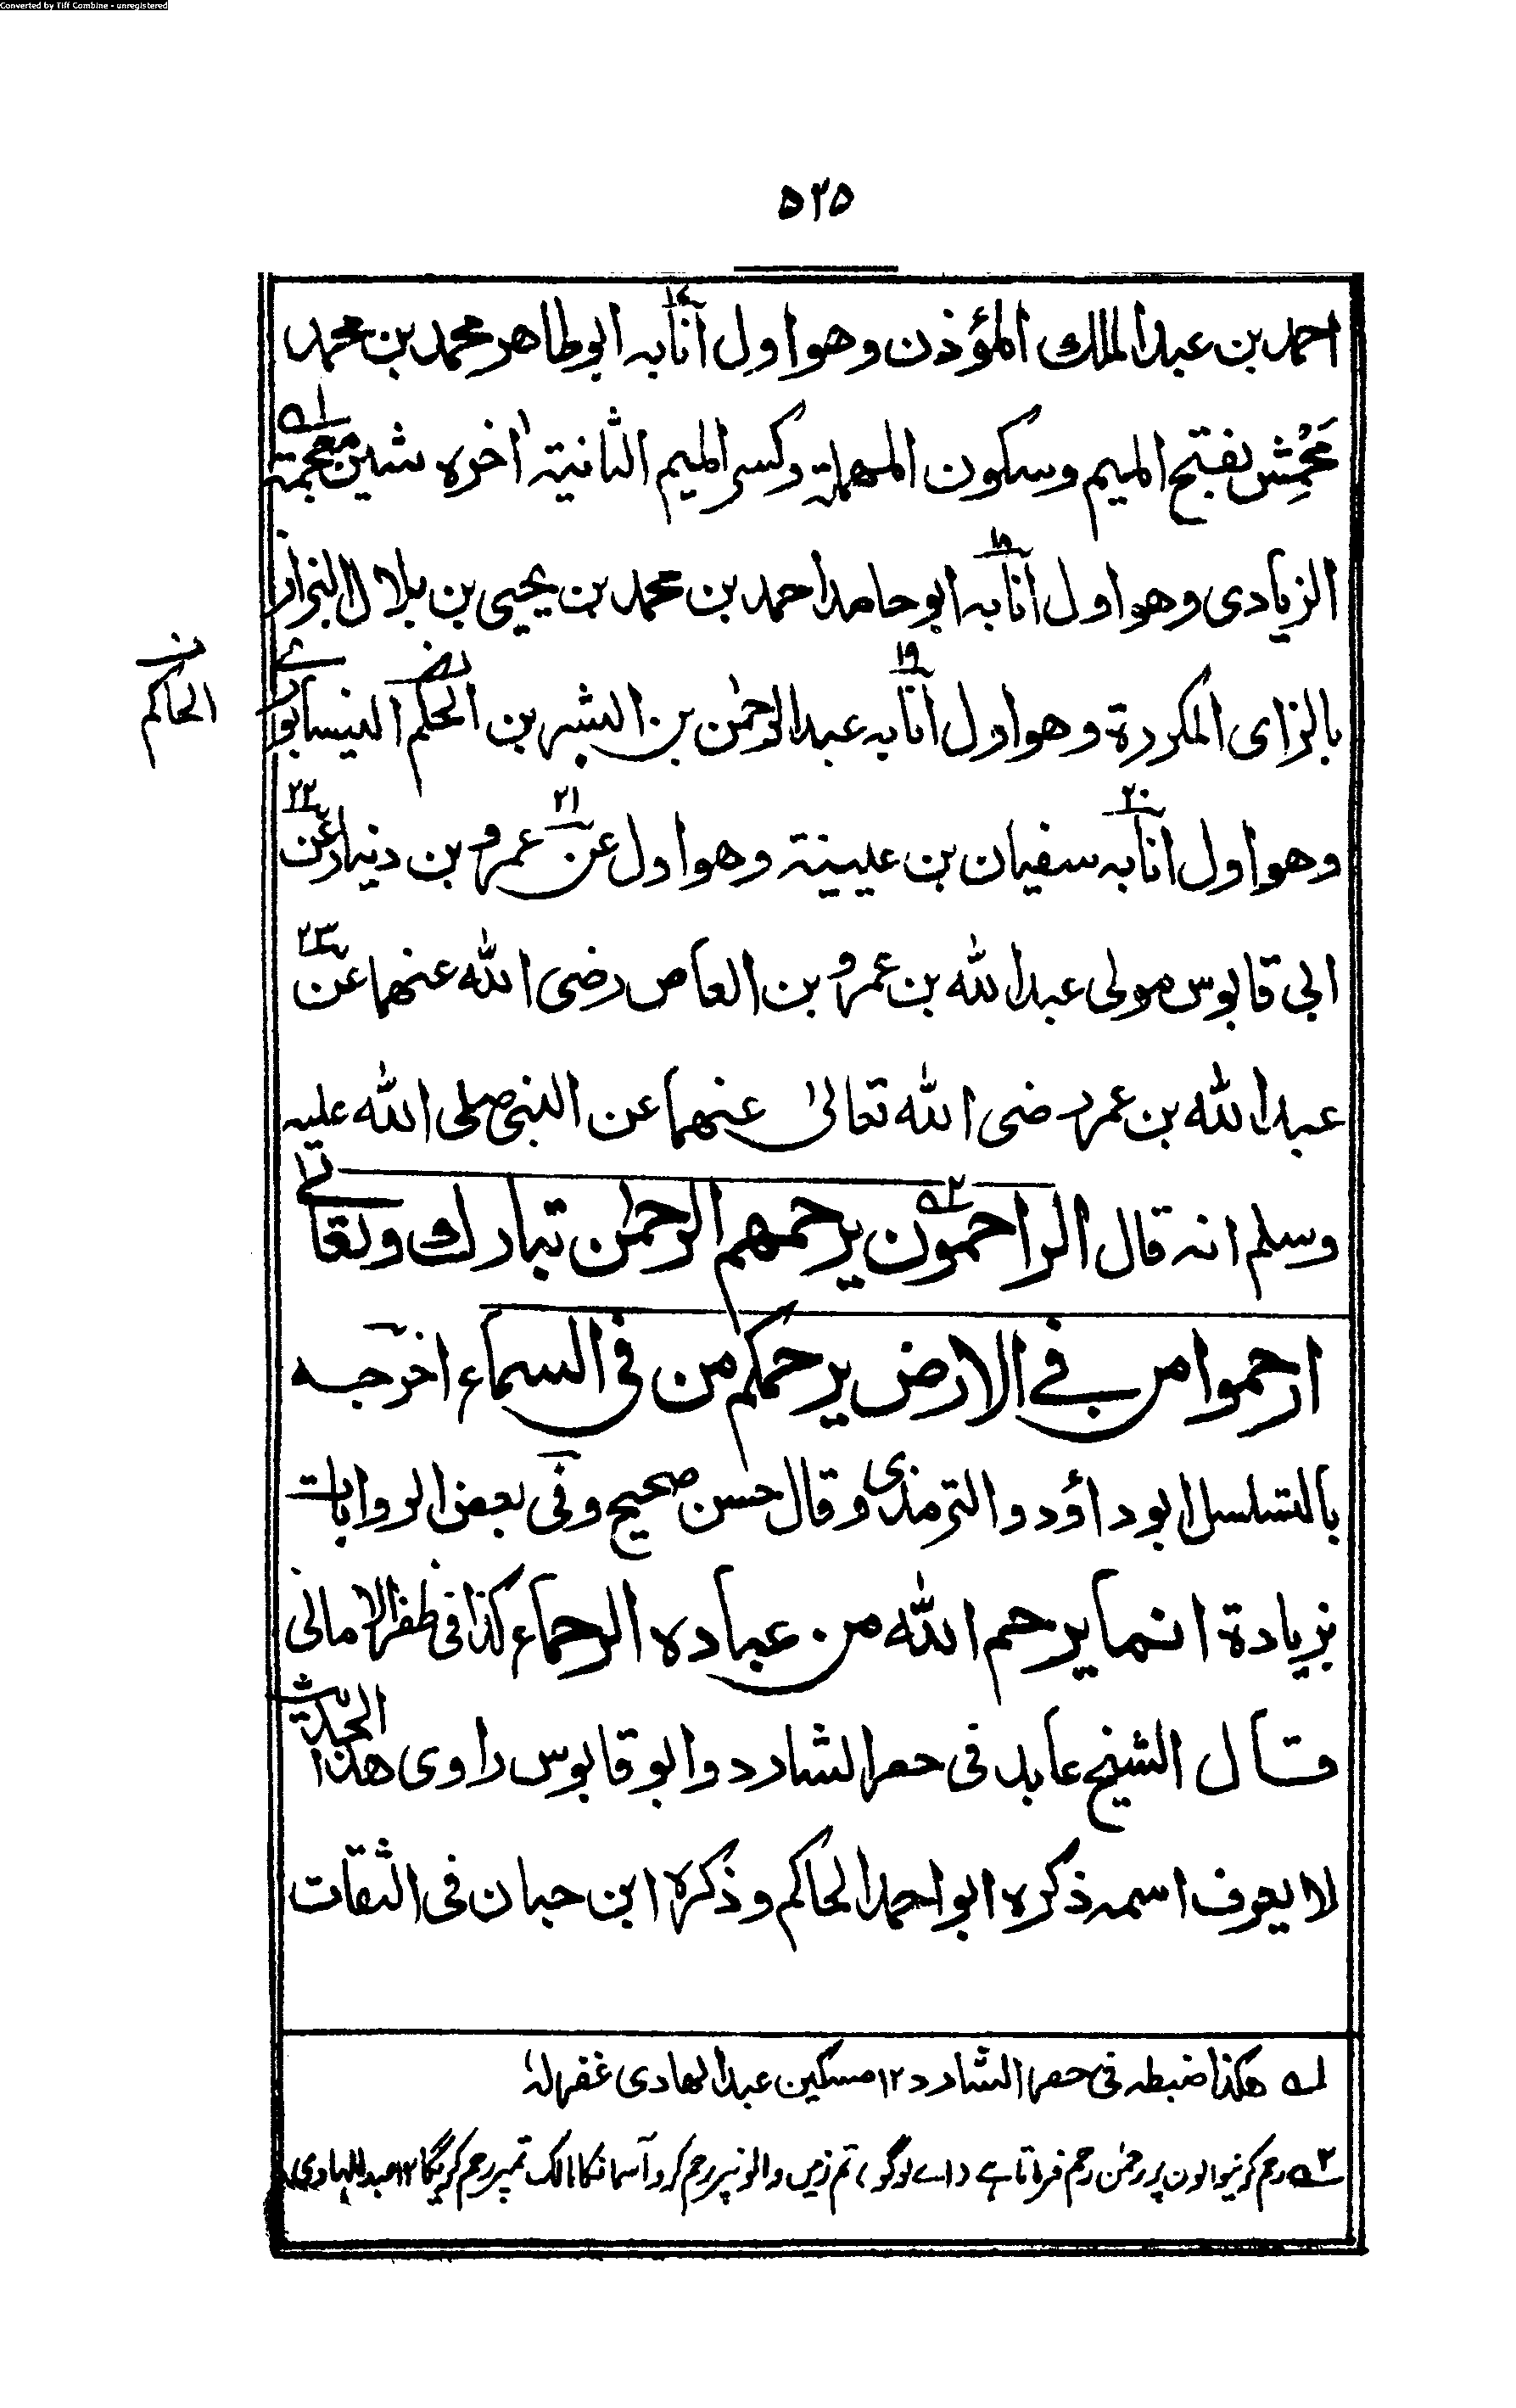 Converted by Tiff Combine - unregistered
۵۲۵
احمد بن عبد الملك المؤذن وهو اول انا به ابو طاهر محمد بن محمد
مَحْمِش بفتح الميم وسكون المهملة وكسر الميم الثانية اٰخره شين معجمة
الزيادى وهو اول انا به ابو حامد احمد بن محمد بن يحيى بن بلال البزاز
بالزاى المكررة وهو اول انا به عبد الرحمٰن بن البشر بن الحكم النيسابورى
الحاكم
وهو اول انا به سفيان بن عيينة وهو اول عن عمرو بن دينار عن
ابى قابوس مولى عبد الله بن عمرو بن العاص رضى الله عنهما عن
عبد الله بن عمر رضى الله تعالىٰ عنهما عن النبى صلى الله عليه
وسلم انه قال الراحمون يرحمهم الرحمٰن تبارك وتعالى
ارحموا من فى الارض يرحمكم من فى السماء اخرجه
بالتسلسل ابو داؤد والترمذى وقال حسن صحيح وفى بعض الروايات
بزيادة انما يرحم الله من عباده الرحماء كذا فى ظفر الامانى
قال الشيخ عابد فى حصر الشارد وابو قابوس راوى هذا الحديث
لا يعرف اسمه ذكره ابو احمد الحاكم وذكره ابن حبان فى الثقات
۱ه هكذا ضبطه فى حصر الشارد ۱۲ مسكين عبد الهادى غفرلهٗ
۲ه رحم کرنیوالون پر رحمٰن رحم فرماتا ہے (اے لوگو) تم زمین والونپر رحم کرو آسمانکا مالک تمپر رحم کریگا ۱۲ عبدالہادی